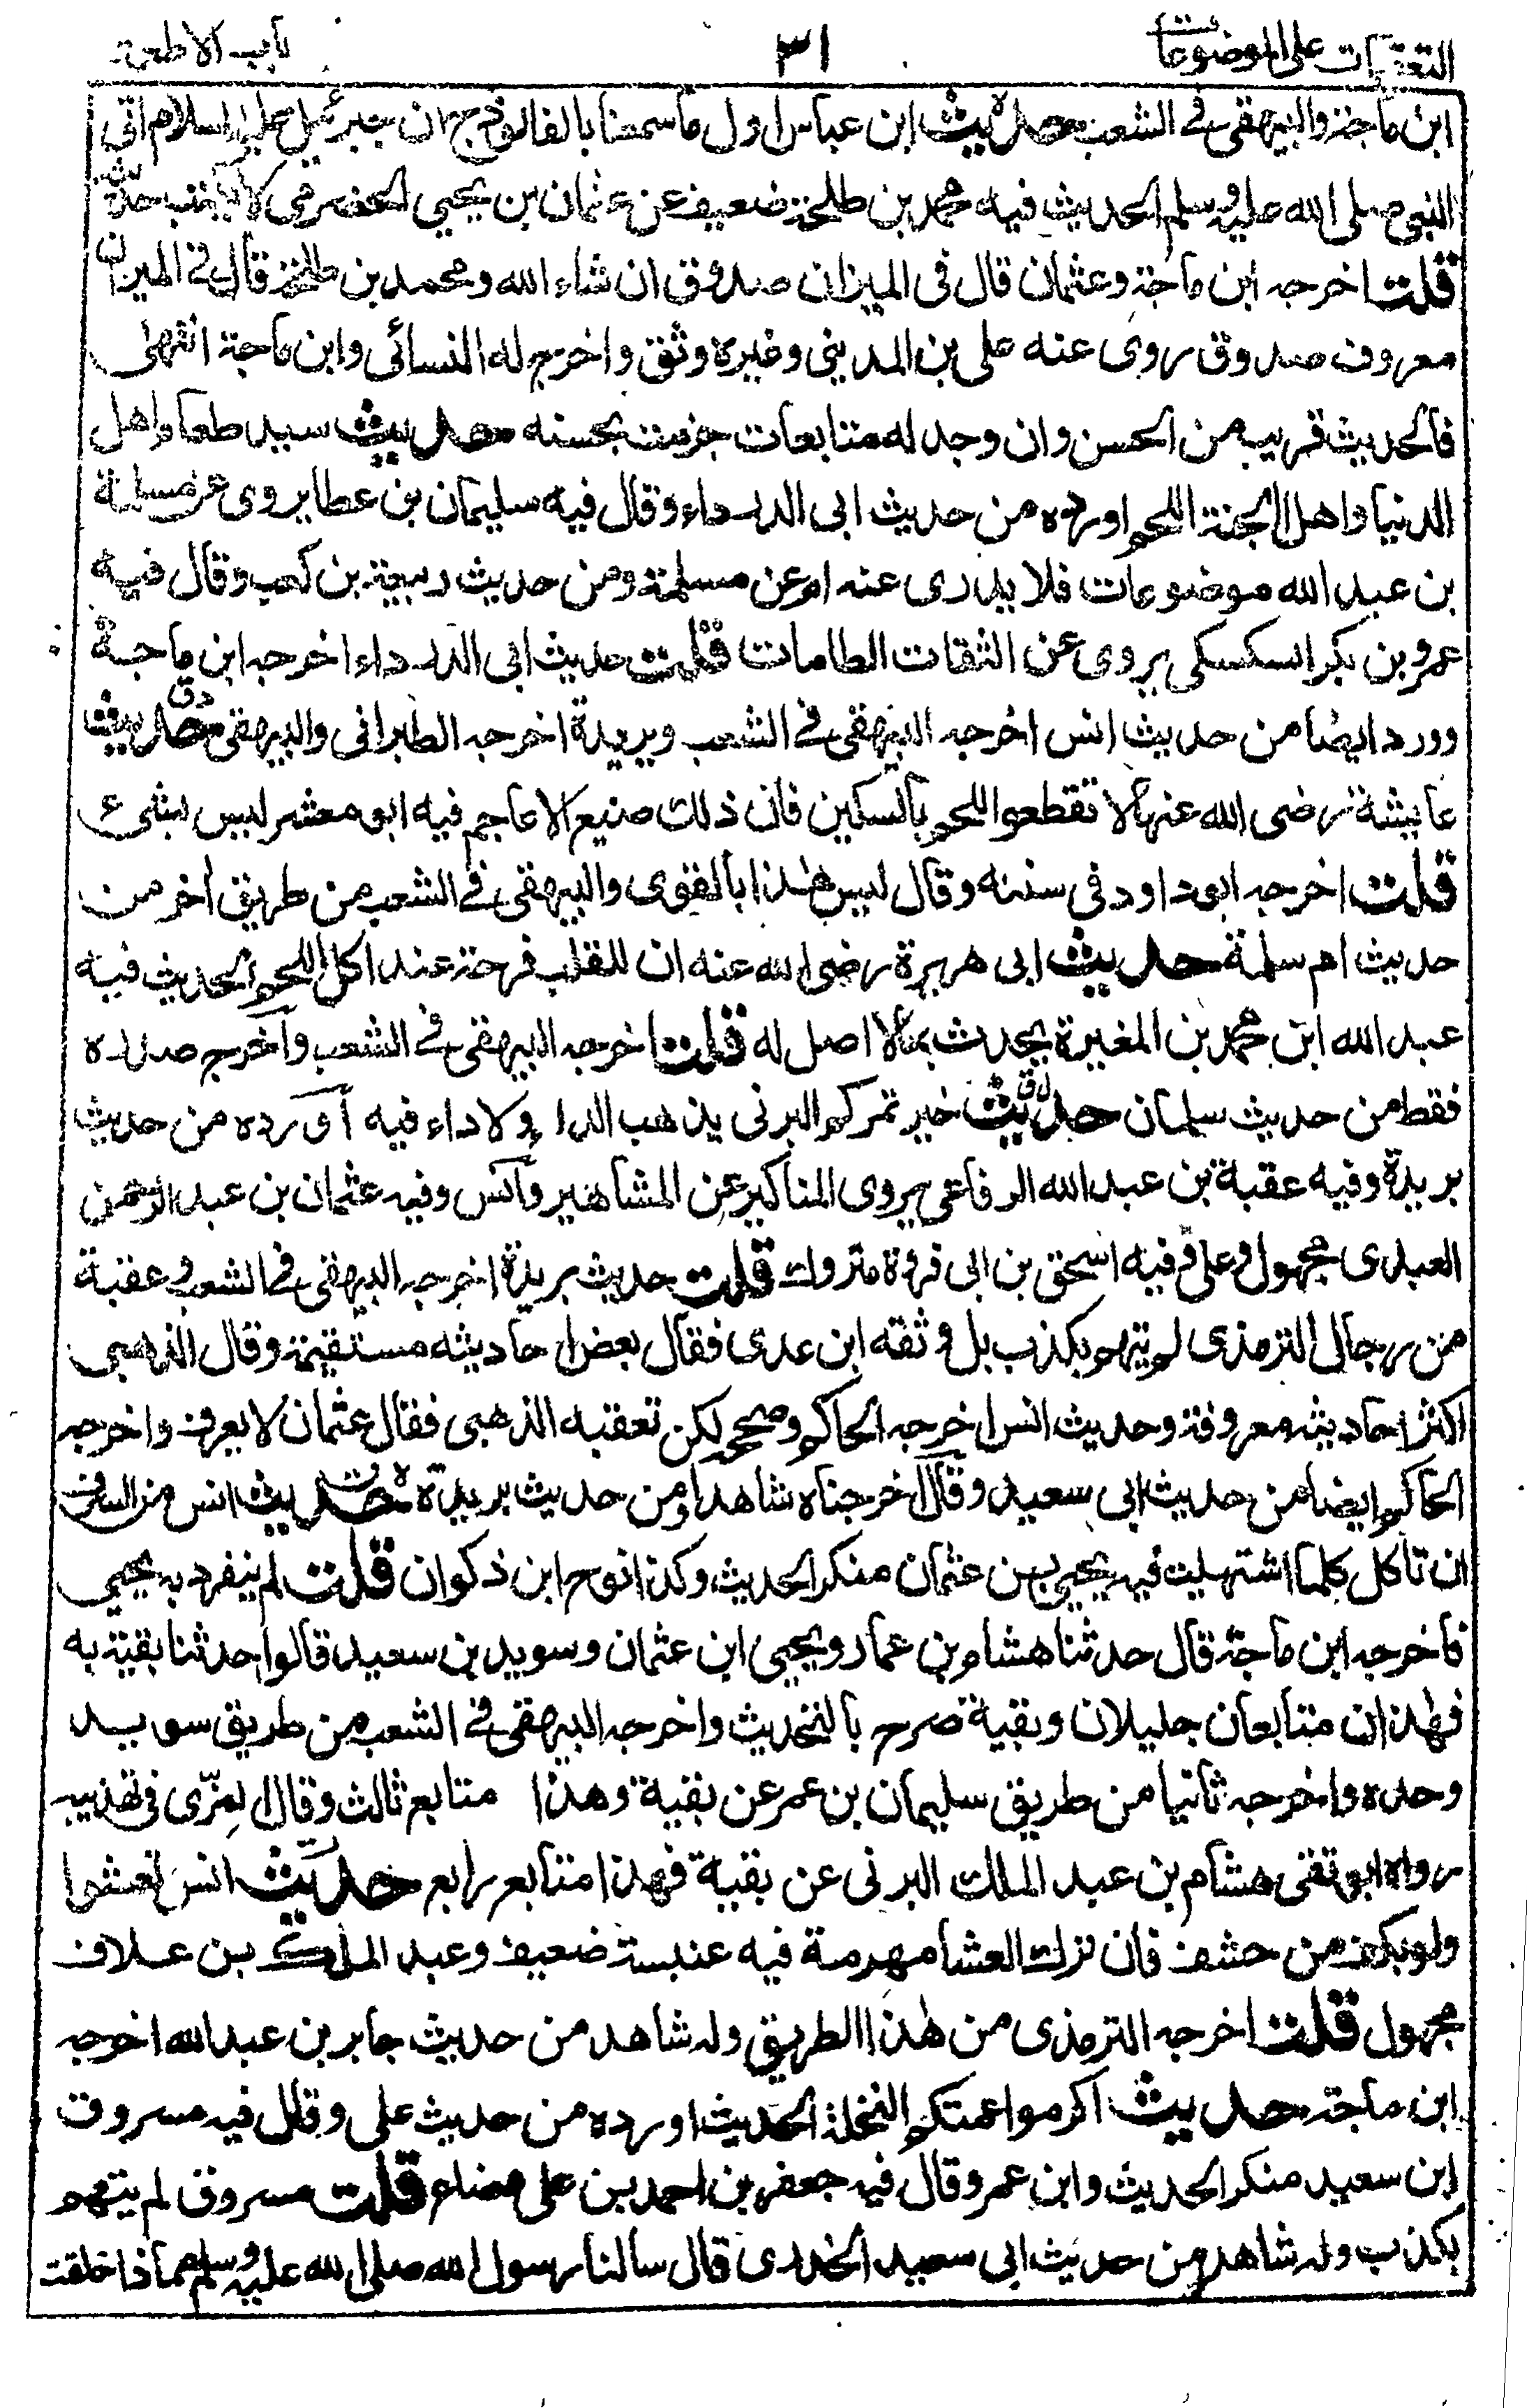 التعقبات على الموضوعات ٣١ باب الاطعمة
ابن ماجة والبيهقى فے الشعب حديث ابن عباس اول ما سمعنا بالفالوذج ان جبرئيل عليه السلام اتى
النبى صلى الله عليه وسلم الحديث فيه محمد بن طلحة ضعيف عن عثمان بن يحيى الحضرمى لا يكتب حديثه
قلت اخرجه ابن ماجة وعثمان قال فى الميزان صدوق ان شاء الله ومحمد بن طلحة قال فے الميزان
معروف صدوق روى عنه على بن المدينى وغيره وثق واخرج له النسائى وابن ماجة انتهى
فالحديث قريب من الحسن وان وجد له متابعات جزمت بحسنه حديث سيد طعام اهل
الدنيا واهل الجنة اللحم اورده من حديث ابى الدرداء وقال فيه سليمان بن عطا يروى عن مسلمة
بن عبد الله موضوعات فلا يدرى عنه ام عن مسلمة ومن حديث ربيعة بن كعب وقال فيه
عمرو بن بكر السكسكى يروى عن الثقات الطامات قلت حديث ابى الدرداء اخرجه ابن ماجة
وورد ايضا من حديث انس اخرجه البيهقى فے الشعب وبريدة اخرجه الطبرانى والبيهقى حديث
عايشة رضى الله عنها لا تقطعوا اللحم بالسكين فان ذلك صنيع الاعاجم فيه ابو معشر ليس بشىء
قلت اخرجه ابو داود فى سننه وقال ليس هذا بالقوى والبيهقى فے الشعب من طريق اخر من
حديث ام سلمة حديث ابى هريرة رضى الله عنه ان للقلب فرحة عند اكل اللحم الحديث فيه
عبد الله ابن محمد بن المغيرة يحدث بما لا اصل له قلت اخرجه البيهقى فے الشعب وآخرج صدره
فقط من حديث سلمان حديث خير تمركم البرنى يذهب الداء ولا داء فيه آورده من حديث
بريدة وفيه عقبة بن عبد الله الرفاعى يروى المناكير عن المشاهير وآنس وفيه عثمان بن عبد الرحمن
العبدى مجهول وعلى وفيه اسحق بن ابى فروة متروك قلت حديث بريدة اخرجه البيهقى فے الشعب وعقبة
من رجال الترمذى لم يتهم بكذب بل وثقه ابن عدى فقال بعض احاديثه مستقيمة وقال الذهبى
اكثر احاديثه معروفة وحديث انس اخرجه الحاكم وصححه لكن تعقبه الذهبى فقال عثمان لا يعرف واخرجه
الحاكم ايضا من حديث ابى سعيد وقال اخرجناه شاهدا ومن حديث بريدة حديث انس من السرف
ان تاكل كلما اشتهيت فيه يحيى بن عثمان منكر الحديث وكذا نوح ابن ذكوان قلت لم ينفرد به يحيى
فاخرجه ابن ماجة قال حدثنا هشام بن عمار ويحيى ابن عثمان وسويد بن سعيد قالوا حدثنا بقية به
فهذان متابعان جليلان وبقية صرح بالتحديث واخرجه البيهقى فے الشعب من طريق سويد
وحده واخرجه ثانيا من طريق سليمان بن عمر عن بقية وهذا متابع ثالث وقال المزّى فى تهذيبه
رواه ابو تقى هشام بن عبد الملك البرنى عن بقية فهذا متابع رابع حديث انس تعشوا
ولو بكف من حشف فان ترك العشا مهرمة فيه عنبسة ضعيف وعبد الملك بن علاف
مجهول قلت اخرجه الترمذى من هذا الطريق وله شاهد من حديث جابر بن عبد الله اخرجه
ابن ماجة حديث اكرموا عمتكم النخلة الحديث اورده من حديث على وقال فيه مسروق
ابن سعيد منكر الحديث وابن عمر وقال فيه جعفر بن احمد بن على وضاع قلت مسروق لم يتهم
بكذب وله شاهد من حديث ابى سعيد الخدرى قال سالنا رسول الله صلى الله عليه وسلم مماذا خلقت